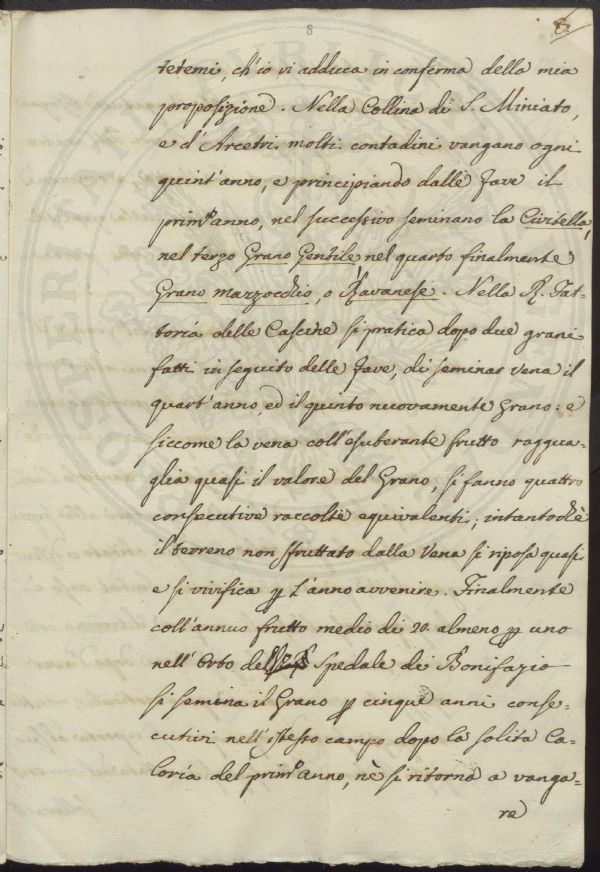 8
8.
tetemi, ch'io vi adduca in conferma della mia
proposizione. Nella Collina di S. Miniato,
e d'Arcetri molti contadini vangano ogni
quint'anno, e principiando dalle fave il
prim.o anno, nel successivo seminano la Civitella,
nel terzo Grano Gentile, nel quarto finalmente
Grano mazzocchio, o Ravanese. Nella R. Fat=
toria delle Cascine si pratica dopo due grani
fatti in seguito delle fave, di seminar vena il
quart'anno, ed il quinto nuovamente Grano: e
siccome la vena coll'esuberante frutto raggua=
glia quasi il valore del Grano, si fanno quattro
consecutive raccolte equivalenti; intantochè
il terreno non sfruttato dalla Vena si riposa quasi
e si vivifica p l'anno avvenire. Finalmente
coll'annuo frutto medio di 20. almeno p uno
nell'Orto del Spedale di Bonifazio
si semina il Grano p cinque anni conse=
cutivi nell'istesso campo dopo la solita Ca=
loria del prim.o anno, nè si ritorna a vanga=
re